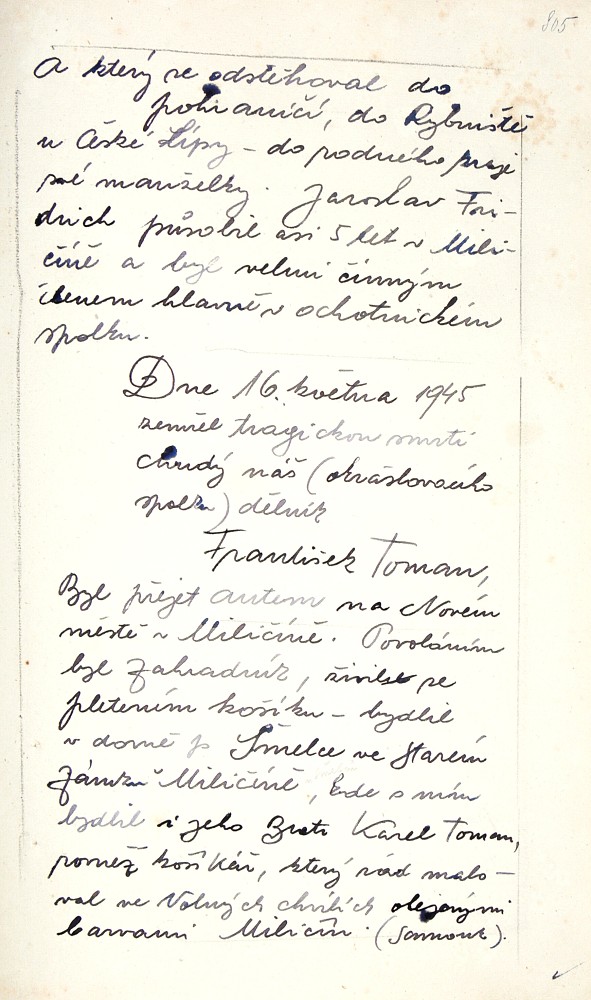 805
A který se odstěhoval do
pohraničí, do Rybniště
u České Lípy – do rodného kraje
své manželky. Jaroslav Fri-
drich působil asi 5 let v Mili-
číně a byl velmi činným
členem hlavně v ochotnickém
spolku.
Dne 16. května 1945
zemřel tragickou smrtí
chudý náš (okrašlovacího
spolku) dělník
František Toman,
Byl přejet autem na Novém
městě v Miličíně. Povoláním
byl zahradník, živil se
pletením košíku – bydlil
v domě p. Šmelce ve starém
zámku Miličíně, kde s ním
bydlil i jeho bratr Karel Toman,
rovněž košíkář, který rád malo-
val ve volných chvílích olejovými
barvami Miličín. (samouk).